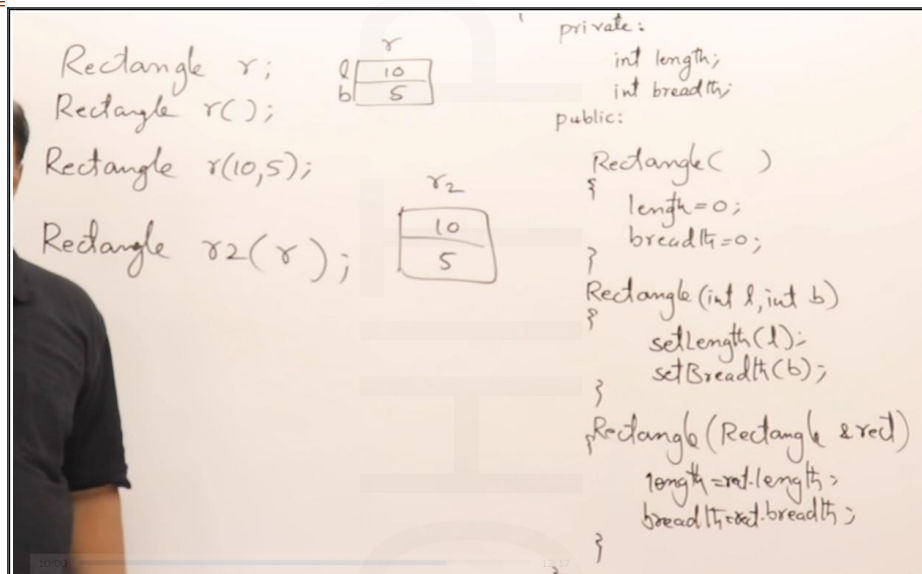 Rectangle r;
Rectangle r();
Rectangle r(10,5);
Rectangle r2(r);
r
l 10
b 5
r2
10
5
private:
int length;
int breadth;
public:
Rectangle( )
{
length=0;
breadth=0;
}
Rectangle(int l, int b)
{
setLength(l);
setBreadth(b);
}
Rectangle(Rectangle &rect)
{
length=rect.length;
breadth=rect.breadth;
}
10:00